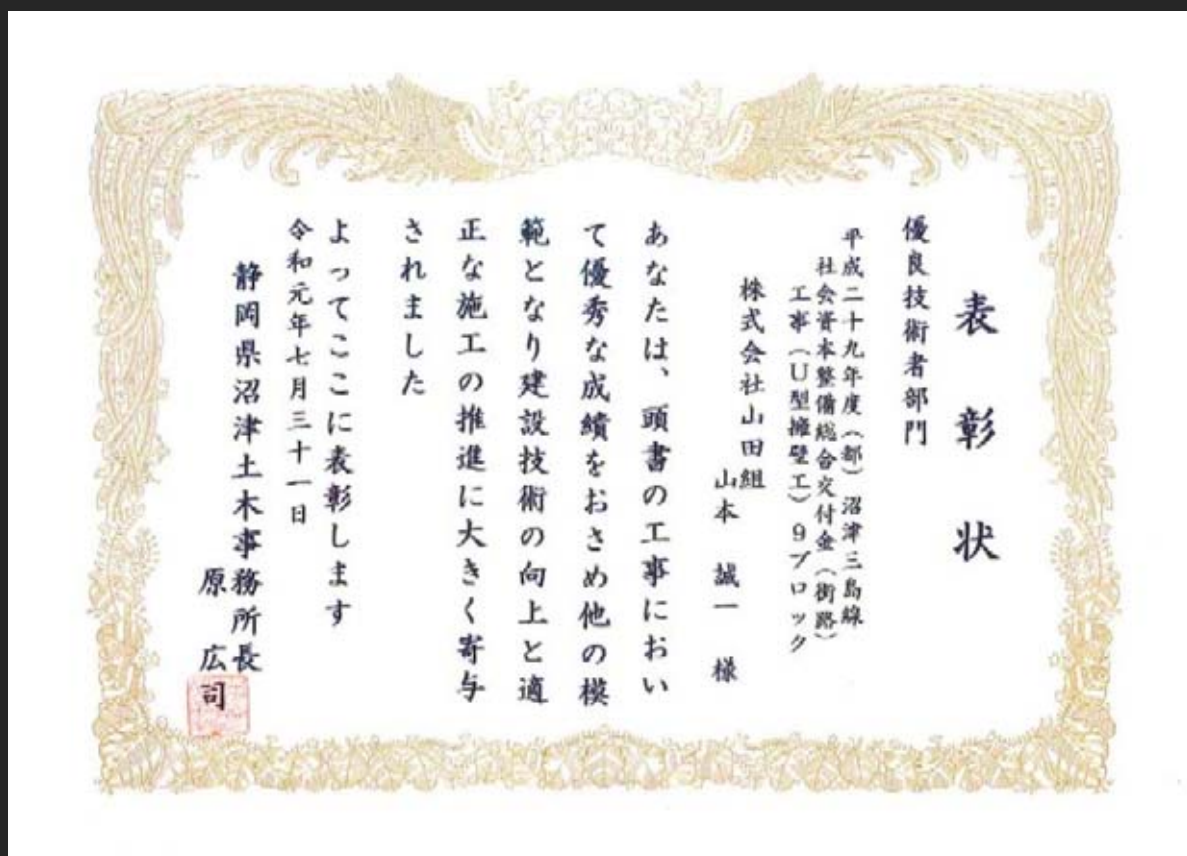 表彰状
優良技術者部門
平成二十九年度（都）沼津三島線
社会資本整備総合交付金（街路）
工事（U型擁壁工）９ブロック
株式会社山田組
山本　誠一　様
あなたは、頭書の工事におい
て優秀な成績をおさめ他の模
範となり建設技術の向上と適
正な施工の推進に大きく寄与
されました
よってここに表彰します
令和元年七月三十一日
静岡県沼津土木事務所長
原　広司